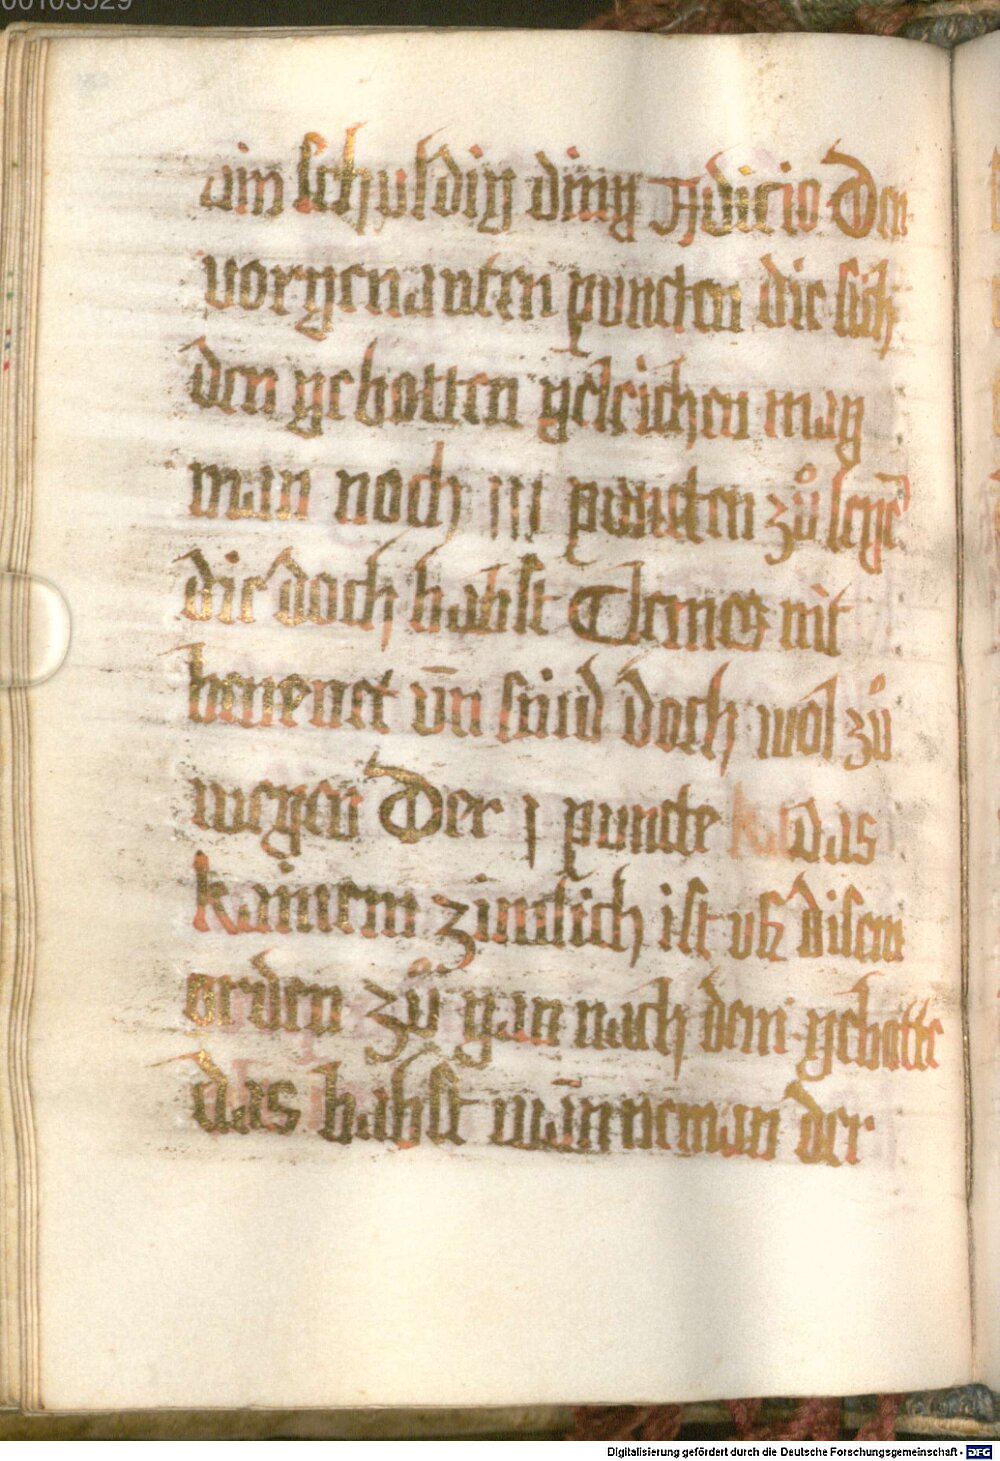 00103529
ain schuldig ding Adicio Den
vorgenanten puncten die sich
den gebotten geleichen mag
man noch iij puncten zů legē
die doch babst Clemes nit
benenet vn̄ sind doch wol zů
wegen Der j puncte ka das
kainem zimlich ist vſz disem
orden zů gan nach dem gebotte
das babst man̄neman der
Digitalisierung gefördert durch die Deutsche Forschungsgemeinschaft - DFG